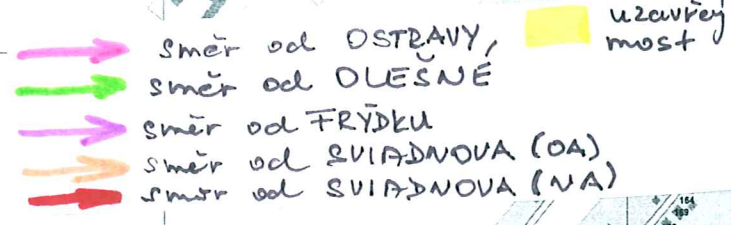 směr od OSTRAVY,
směr od OLEŠNÉ
směr od FRÝDKU
směr od SVIADNOVA (OA)
směr od SVIADNOVA (NA)
uzavřený
most
164
169